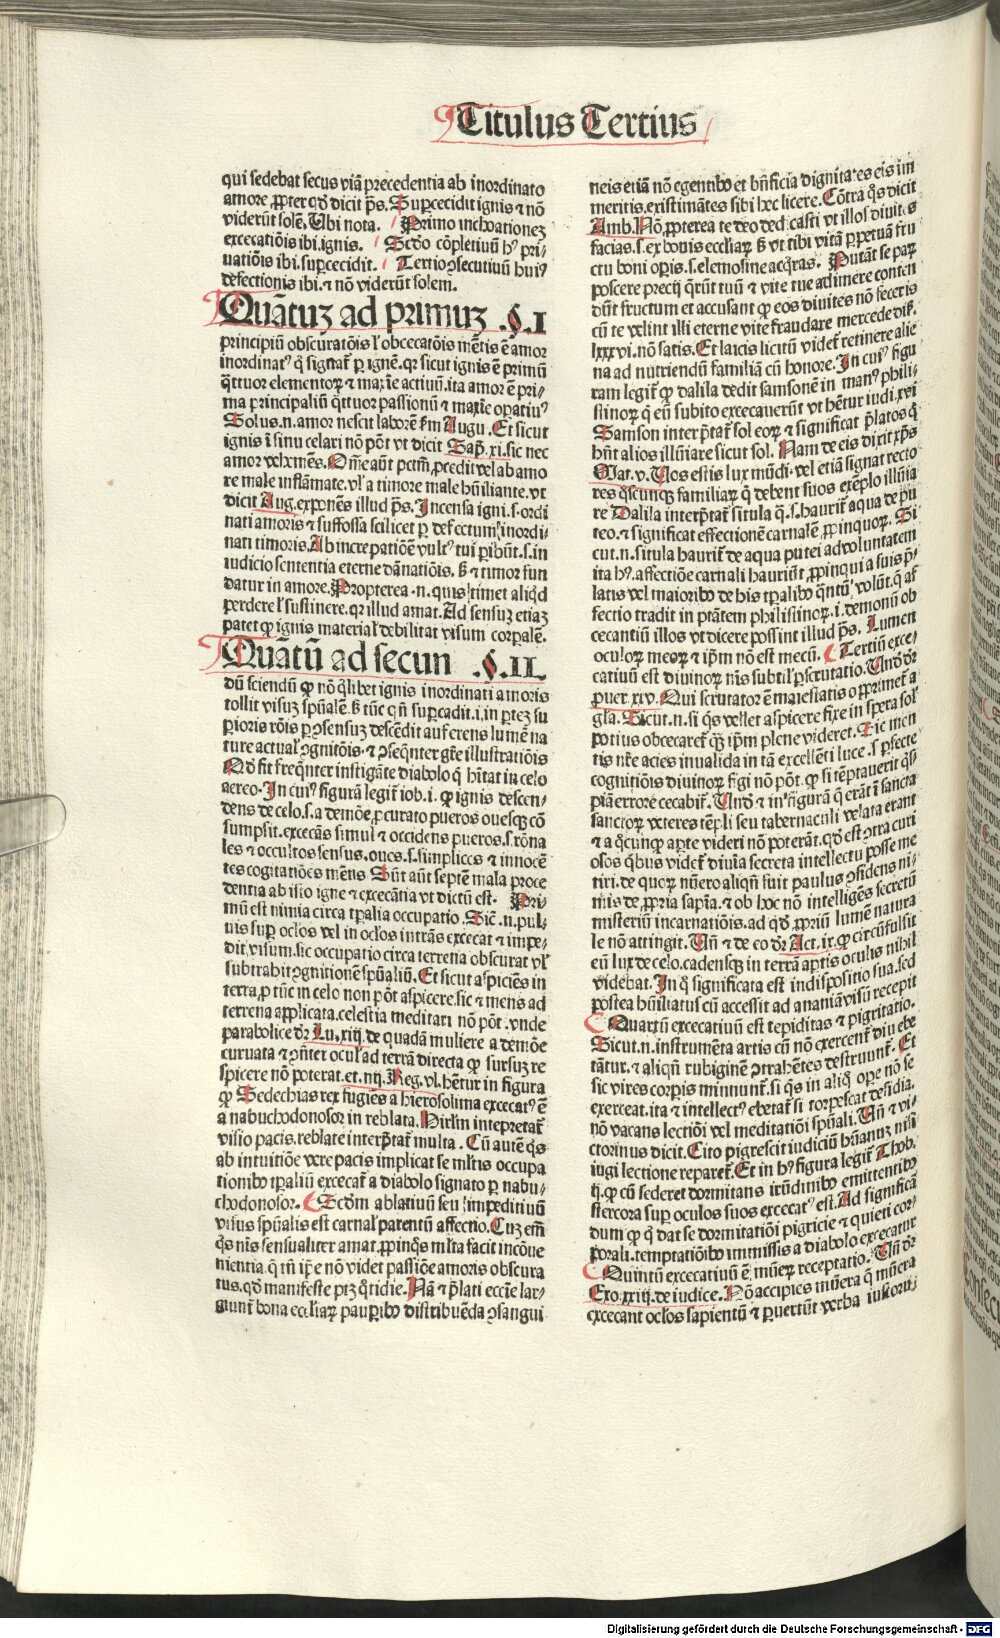 Titulus Tertius
qui sedebat secus viā precedentia ab inordinato
amore ꝓpter qd' dicit ps̄. Supcecidit ignis ⁊ nō
viderūt solē. Ubi nota. Primo inchoationeʒ
excecatiōis ibi. ignis. Scd'o cōpletiuū hꝰ pri⸗
uatiōis ibi. sup̱cecidit. Tertio ꝯsecutiuū huiꝰ
defectionis ibi. ⁊ nō viderūt solem.
Quātuʒ ad primuʒ .§.I
principiū obscuratōis l' obcecatōis mētis ē amor
inordinatꝰ q̇ signat᷑ ꝑ ignē. qꝛ sicut ignis ē primū
q̈ttuor elementoꝝ ⁊ maxīe actiuū. ita amor ē pri⸗
ma principaliū q̈ttuor passionū ⁊ maxīe opatiuꝰ
Solus. n. amor nescit laborē f̄m Augu. Et sicut
ignis ī sinu celari nō pōt vt dicit Sap̄. xi. sic nec
amor vehemēs. Om̄e aūt pctm̄ ꝓcedit vel ab amo
re male inflāmate. vl' a timore male hūiliante. vt
dicit Aug. exponēs illud ps̄. Incensa igni. s. ordi
nati amoris ⁊ suffossa scilicet ꝑ defectum inordi⸗
nati timoris. Ab increpatiōe vultꝰ tui peribūt. s. in
iudicio sententia eterne dānatiōis. ß ⁊ timor fun
datur in amore. Propterea. n. quis timet aliqd
perdere l' sustinere. qꝛ illud amat. Ad sensuʒ etiaʒ
patet ꝙ ignis material' debilitat visum corpalē.
Quātū ad secun .§.II.
dū sciendū ꝙ nō q̇libet ignis inordinati amoris
tollit visuʒ spūalē. ß tūc qn̄ supcadit. i. in parteʒ su
perioris rōis ꝑ ꝯsensuʒ descēdit auferens lumē na
ture actual' ꝯgnitōis. ⁊ ꝯseqn̄ter grē illustratiōis
Qd' fit freqn̄ter instigāte diabolo q̇ hītat in celo
aereo. In cuiꝰ figurā legit᷑ iob. i. ꝙ ignis descen⸗
dens de celo. s. a demōe, ꝓcurato pueros ouesqʒ cō
sumpsit. excecās simul ⁊ occidens pueros. s. rōna
les ⁊ occultos sensus. oues. s. simplices ⁊ innocē
tes cogitatiōes mētis. Sūt aūt septē mala proce
dentia ab isto igne ⁊ excecātia vt dictū est. Pri⸗
mū est nimia circa tp̄alia occupatio. Sic̄. n. pul⸗
uis sup oc'los vel in oc'los intrās excecat ⁊ impe⸗
dit, visum. sic occupatio circa terrena obscurat vl'
subtrahit ꝯgnitionē spūaliū. Et sicut aspiciēs in
terrā, ꝓ tūc in celo non pōt aspicere. sic ⁊ mens ad
terrena applicata. celestia meditari nō pōt. vnde
parabolice dr̄ Lu. xiij. de quadā muliere a demōe
curuata ⁊ ꝯn̄ter ocul' ad terrā directa ꝙ sursuʒ re
spicere nō poterat. et. iiij. Reg. vl. hētur in figura
ꝙ Sedechias rex fugiēs a hierosolima excecatꝰ ē
a nabuchodonosor in reblata. Hirl'm intepretat᷑
visio pacis. reblate interp̄tat᷑ multa. Cū autē q̇s
ab intuitiōe vere pacis implicat se ml'tis occupa
tionibꝰ tp̄aliū excecat᷑ a diabolo signato ꝑ nabu⸗
chodonosor. Scd'm ablatiuū seu impeditiuū
visus spūalis est carnal' parentū affectio. Cuʒ em̄
q̇s nīs sensualiter amat. ꝓpinq̇s ml'ta facit incōue
nientia. q̇ tn̄ ip̄e nō videt passiōe amoris obscura
tus. qd' manifeste ptʒ q̇tidie. Nā ⁊ p̄lati ecc'ie lar⸗
giunt᷑ bona ecc'liaꝝ pauꝑibꝰ distribuēda ꝯsangui
neis etiā nō egentibꝰ et bn̄ficia dignitates eis im
meritis. existimātes sibi hec licere. Cōtra q̇s dicit
Amb. Nō, ꝓpterea te deo ded casti vt illos diuites
facias. s. ex bonis eccliaꝝ ß vt tibi vitā ꝑpetuā fru
ctu boni opis. s. elemosine acq̇ras. Putāt se par
poscere precij q̇rūt tuū ⁊ vite tue adimere conten
dūt fructum et accusant ꝙ eos diuites nō feceris
cū te velint illi eterne vite fraudare mercede diß.
lxxxvi. nō satis. Et laicis licitū videt᷑ retinere alie
na ad nutriendū familiā cū honore. In cuiꝰ figu
ram legit᷑ ꝙ dalila dedit samsonē in manꝰ phili⸗
stinoꝝ q̇ eū subito excecauerūt vt hētur iudi. xvi
Samson interp̄tat᷑ sol eoꝝ ⁊ significat p̄latos q̇
hn̄t alios illuīare sicut sol. Nam de eis dixit xp̄s
Mat. v. Uos estis lux mūdi. vel etiā signat recto
res q̇scunqʒ familiaꝝ q̇ debent suos exēplo illuīa
re Dalila interp̄tat᷑ situla q̄. s. haurit᷑ aqua de pu
teo. ⁊ significat effectionē carnalē, ꝓpinquoꝝ. Si
cut. n. situla haurit᷑ de aqua putei ad voluntatem
ita hꝰ. affectiōe carnali hauriūt, ꝓpinqui a suis p̄⸗
latis vel maioribꝰ de his tp̄alibꝰ qn̄tū volūt. q̄ af
fectio tradit in ptātem philistinoꝝ. i. demonū ob
cecantiū illos vt dicere possint illud ps̄. Lumen
oculoꝝ meoꝝ ⁊ ip̄m nō est mecū. Tertiū exce⸗
catiuū est diuinoꝝ nīs subtil' ꝑscrutatio. Und' dr̄
prouer. xxv. Qui scrutator ē maiestatis opprimet᷑ a
gl'a. Sicut. n. si q̇s vellet aspicere fixe in spera sol'
potius obcecaret᷑ q̄ʒ ip̄m plene videret. Sic men
tis nr̄e acies inualida in tā excellēti luce. s. ꝑfecte
cognitiōis diuinoꝝ figi nō pōt. ꝙ si tēptauerit q̇si
p̄ā errore cecabit᷑. Und' ⁊ in figurā q̇ erāt ī sancta
sanctoꝝ veteres tēpli seu tabernaculi velata erant
⁊ a q̇cunqʒ apte videri nō poterāt. qd' est ꝯtra curi
osos q̇bus videt᷑ diuīa secreta intellectu posse me
tiri. de quoꝝ nūero aliqn̄ fuit paulus ꝯfidens ni⸗
mis de, ꝓpria sapīa. ⁊ ob hoc nō intelligēs secretū
misteriū incarnatiōis. ad qd', ꝓpriū lumē natura
le nō attingit. Uñ ⁊ de eo dr̄ Act. ix. ꝙ circūfulsit
eū lux de celo. cadensqʒ in terrā aptis oculis nihil
videbat. In q̇ significata est indispositio sua. sed
postea hūiliatus cū accessit ad ananiā visū recepit
Quartū excecatiuū est tepiditas ⁊ pigritatio.
Sicut. n. instrumēta artis cū nō exercent᷑ diu ebe
tātur. ⁊ aliqn̄ rubiginē ꝯtrahētes destruunt᷑. Et
sic vires corpis minuunt᷑. si q̇s in aliq̇ ope nō se
exerceat. ita ⁊ intellectꝰ ebetat᷑ si torpescat desidia.
nō vacans lectiōi vel meditatiōi spūali. Uñ ⁊ vi⸗
ctorinus dicit. Cito pigrescit iudiciū hūanuʒ nisi
iugi lectione reparet᷑. Et in hꝰ figura legit᷑ Thob.
ij. ꝙ cū sederet dormitans irūdinibꝰ emittentibꝰ
stercora sup oculos suos excecatꝰ est. Ad significā
dum ꝙ q̇ dat se dormitatiōi pigricie ⁊ quieti cor⸗
porali. temptatiōibꝰ immissis a diabolo excecatur
Quintū excecatiuū ē mūeꝝ receptatio. Uñ dr̄
Exo. xxiij. de iudice. Nō accipies mūera q̇ mūera
excecant oc'los sapientū ⁊ puertūt verba iustoꝝ.
Digitalisierung gefördert durch die Deutsche Forschungsgemeinschaft - DFG